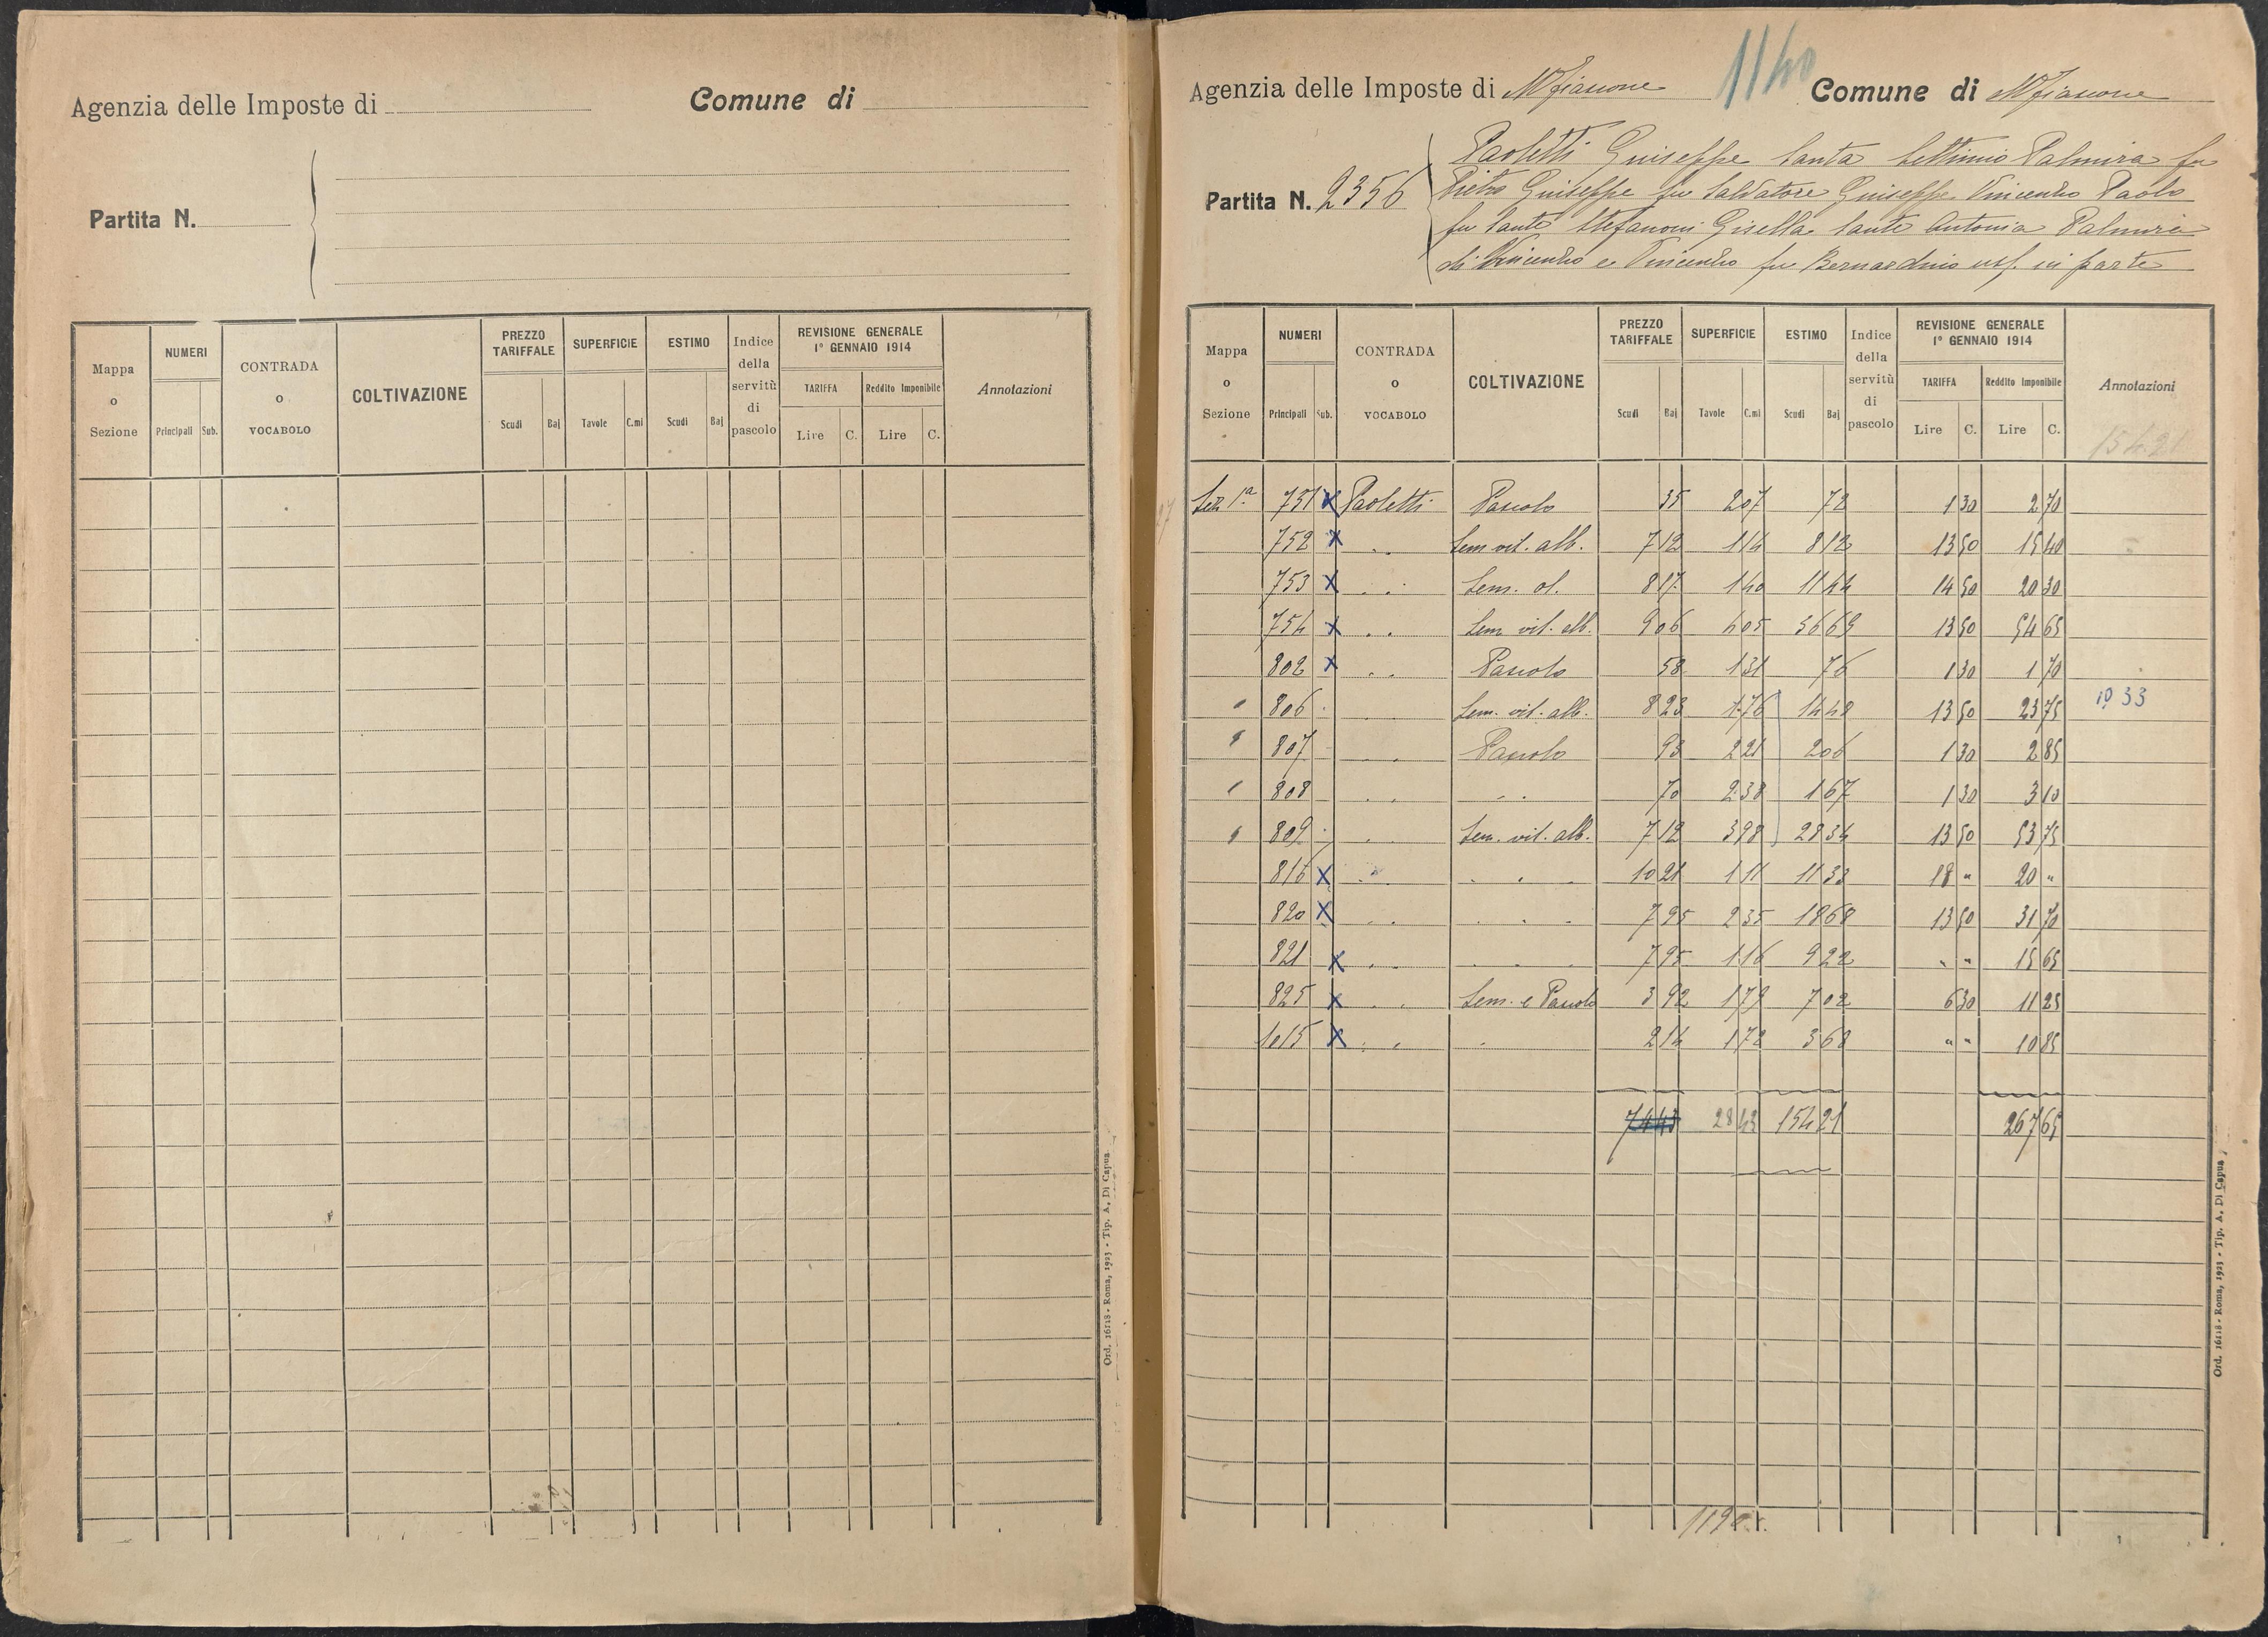 Agenzia delle Imposte di
Comune di
Partita N.
Mappa o Sezione
NUMERI
Principali Sub.
CONTRADA o VOCABOLO
COLTIVAZIONE
PREZZO TARIFFALE
Scudi Baj
SUPERFICIE
Tavole C.mi
ESTIMO
Scudi Baj
Indice della servitù di pascolo
REVISIONE GENERALE 1° GENNAIO 1914
TARIFFA
Lire C.
Reddito Imponibile
Lire C.
Annotazioni
Ord. 16118 - Roma, 1923 - Tip. A. Di Capua
1140
Agenzia delle Imposte di Mfiascone Comune di Mfiascone
Partita N. 2356
Paoletti Giuseppe Santa Settimio Palmira fu
Pietro Giuseppe fu Salvatore Giuseppe Vincenzo Paolo
fu Sante Stefanoni Gisella Sante Antonia Palmira
di Vincenzo e Vincenzo fu Bernardino usf. in parte
Mappa o Sezione
NUMERI
Principali Sub.
CONTRADA o VOCABOLO
COLTIVAZIONE
PREZZO TARIFFALE
Scudi Baj
SUPERFICIE
Tavole C.mi
ESTIMO
Scudi Baj
Indice della servitù di pascolo
REVISIONE GENERALE 1° GENNAIO 1914
TARIFFA
Lire C.
Reddito Imponibile
Lire C.
Annotazioni
154.21
Sez 1a 751 x Paoletti Pascolo 35 2 07 72 1 30 2 70
752 x " Sem vit. alb. 7 12 1 14 8 12 13 50 15 40
753 x " Sem. ol. 8 17 1 40 11 44 14 50 20 30
754 x " Sem vit. alb. 9 06 4 05 36 69 13 50 54 65
802 x " Pascolo 58 1 31 76 1 30 1 70
806 Sem. vit. alb. 8 23 1 76 14 48 13 50 23 75 1933
807 " Pascolo 93 2 21 2 06 1 30 2 85
808 " " 70 2 38 1 67 1 30 3 10
809 " Sem. vit. alb. 7 12 3 98 28 34 13 50 53 75
816 x " " 10 21 1 11 11 33 18 " 20 "
820 x " " 7 95 2 35 18 68 13 50 31 70
821 x " " 7 95 1 16 9 22 " " 15 65
825 x " Sem. e Pascolo 3 92 1 79 7 02 6 30 11 25
1015 x " " 2 14 1 72 3 68 " " 10 85
74 43 28 43 154 21 267 65
Ord. 16118 - Roma, 1923 - Tip. A. Di Capua